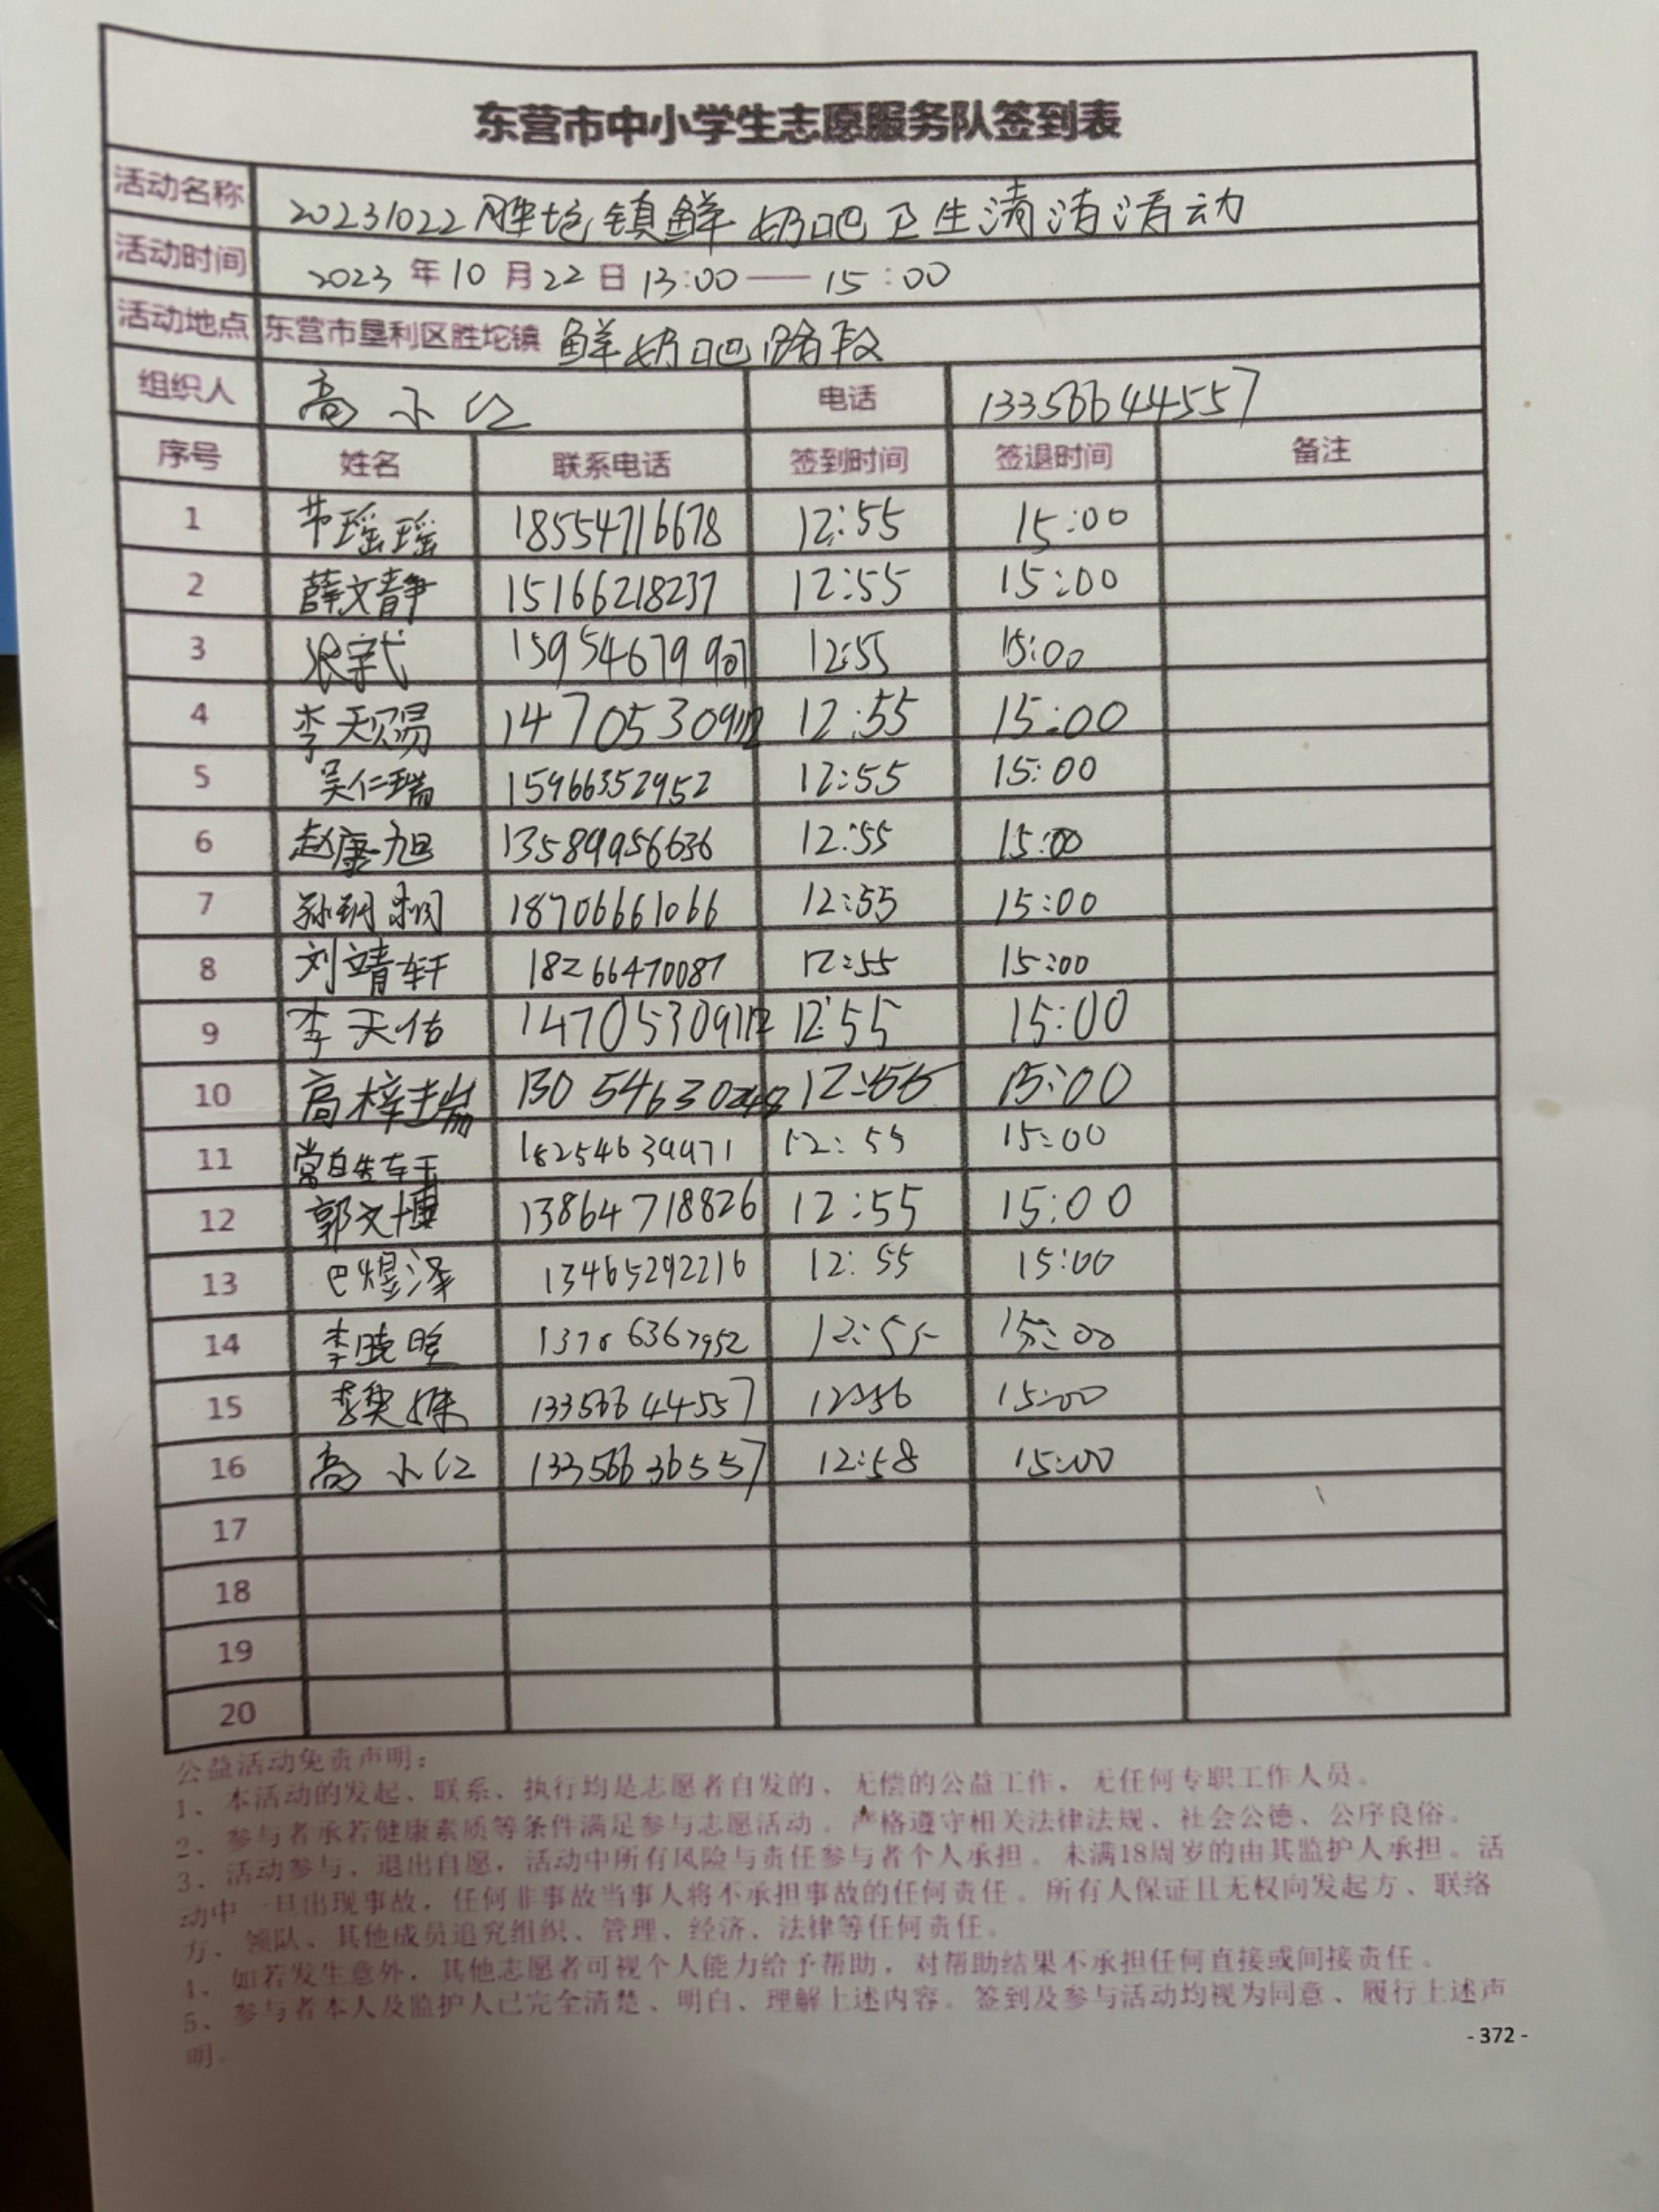 东营市中小学生志愿服务队签到表
活动名称 20231022胜坨镇鲜奶吧卫生清洁活动
活动时间 2023年10月22日13:00——15:00
活动地点 东营市垦利区胜坨镇 鲜奶吧路段
组织人 高小红 电话 13356644557
序号 姓名 联系电话 签到时间 签退时间 备注
1 瑶瑶 18554716678 12:55 15:00
2 薛文静 15166218237 12:55 15:00
3 张宇 15954679907 12:55 15:00
4 李天赐 14705309112 12:55 15:00
5 吴仁瑞 15966352952 12:55 15:00
6 赵康旭 13589956636 12:55 15:00
7 孙玥 18706661066 12:55 15:00
8 刘靖轩 18266470087 12:55 15:00
9 李天佑 14705309112 12:55 15:00
10 高梓瑞 13054630248 12:55 15:00
11 常皓轩 18254639971 12:55 15:00
12 郭文博 13864718826 12:55 15:00
13 巴煜泽 13465292216 12:55 15:00
14 李晓 13706367952 12:55 15:00
15 李奕姝 13356644557 12:56 15:00
16 高小红 13356636557 12:58 15:00
17
18
19
20
公益活动免责声明：
1、本活动的发起、联系、执行均是志愿者自发的、无偿的公益工作，无任何专职工作人员。
2、参与者承若健康素质等条件满足参与志愿活动。严格遵守相关法律法规、社会公德、公序良俗。
3、活动参与、退出自愿，活动中所有风险与责任参与者个人承担。未满18周岁的由其监护人承担。活
动中一旦出现事故，任何非事故当事人将不承担事故的任何责任。所有人保证且无权向发起方、联络
方、领队、其他成员追究组织、管理、经济、法律等任何责任。
4、如若发生意外，其他志愿者可视个人能力给予帮助，对帮助结果不承担任何直接或间接责任。
5、参与者本人及监护人已完全清楚、明白、理解上述内容。签到及参与活动均视为同意、履行上述声
明。
- 372 -